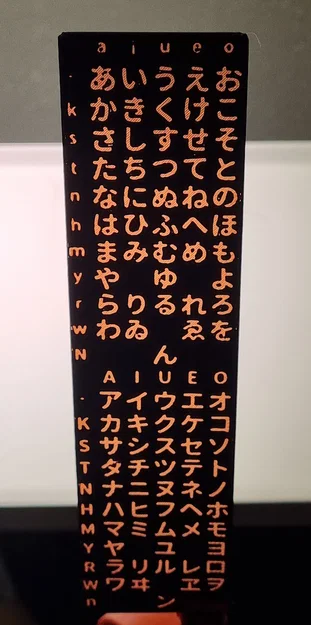 a i u e o
あ い う え お
k か き く け こ
s さ し す せ そ
t た ち つ て と
n な に ぬ ね の
h は ひ ふ へ ほ
m ま み む め も
y や ゆ よ
r ら り る れ ろ
w わ ゐ ゑ を
N ん
A I U E O
· ア イ ウ エ オ
K カ キ ク ケ コ
S サ シ ス セ ソ
T タ チ ツ テ ト
N ナ ニ ヌ ネ ノ
H ハ ヒ フ ヘ ホ
M マ ミ ム メ モ
Y ヤ ユ ヨ
R ラ リ ル レ ロ
W ワ ヰ ヱ ヲ
n ン